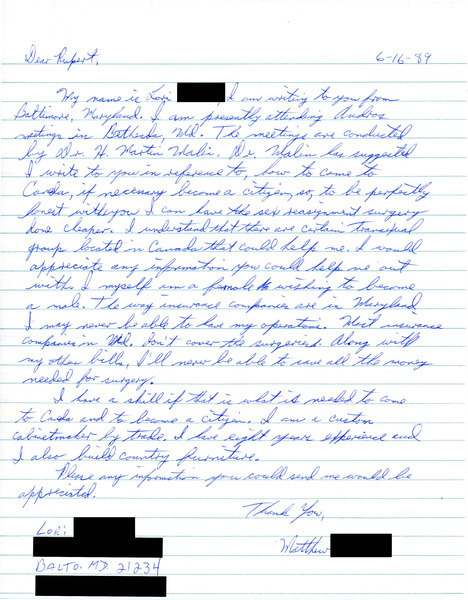 Dear Rupert, 6-16-89
My name is Lori , I am writing to you from
Baltimore, Maryland. I am presently attending Andros
meetings in Bethesda, Md. The meetings are conducted
by Dr. H. Martin Malin. Dr. Malin has suggested
I write to you in reference to, how to come to
Canda, if necessary become a citizen, so, to be perfectly
honest with you I can have the sex reassignment surgery
done cheaper. I understand that there are certain transexual
group located in Canada that could help me. I would
appreciate any information you could help me out
with. I myself am a female wishing to become
a male. The way insurance companies are in Maryland
I may never be able to have my operation. Most insurance
companies in Md. don't cover the surgeries. Along with
my other bills, I'll never be able to save all the money
needed for surgery.
I have a skill if that is what is needed to come
to Canda and to become a citizen. I am a custom
cabinetmaker by trade. I have eight years experience and
I also build country furniture.
Please any information you could send me would be
appreciated.
Thank You,
Lori
Matthew
BALTO. MD 21234